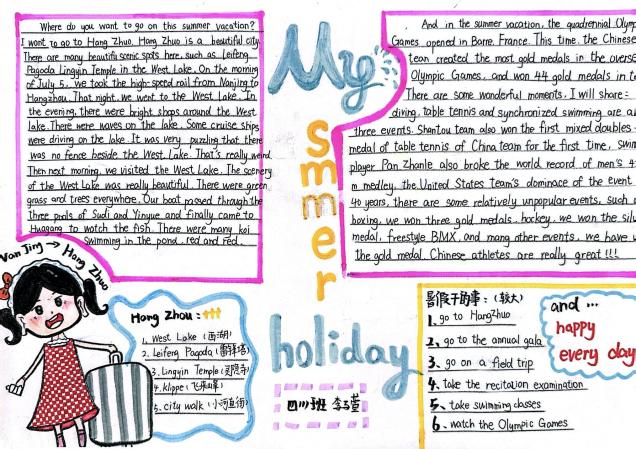 Where do you want to go on this summer vacation?
I want to go to Hang Zhuo, Hang Zhuo is a beautiful city.
There are many beautiful scenic spots here, such as Leifeng
Pagoda Lingyin Temple in the West Lake. On the morning
of July 5, we took the high-speed rail from Nanjing to
Hangzhou. That night, we went to the West Lake. In
the evening, there were bright shops around the West
Lake. There were waves on the lake. Some cruise ships
were driving on the lake. It was very puzzling that there
was no fence beside the West Lake. That's really weird.
Then next morning, we visited the West Lake. The scenery
of the West Lake was really beautiful. There were green
grass and trees everywhere. Our boat passed through the
three pools of Sudi and Yinyue and finally came to
Huagang to watch the fish. There were many koi
swimming in the pond, red and red.
My
summer
holiday
And in the summer vacation, the quadrennial Olympic
Games opened in Barre, France. This time, the Chinese
team created the most gold medals in the overse
Olympic Games, and won 44 gold medals in t
There are some wonderful moments, I will share:
diving, table tennis and synchronized swimming are a
three events. Shantou team also won the first mixed doubles
medal of table tennis of China team for the first time, swim
player Pan Zhanle also broke the world record of men's 4
m medley, the United States team's dominace of the event
40 years, there are some relatively unpopular events, such
boxing, we won three gold medals, hockey, we won the silv
medal, freestyle BMX, and many other events, we have w
the gold medal. Chinese athletes are really great!!!
Nan Jing → Hang Zhuo
Hang Zhou:
1. West Lake (西湖)
2. Leifeng Pagoda (雷峰塔)
3. Lingyin Temple (灵隐寺)
4. klippe (飞来峰)
5. city walk (小河直街)
四川班 李
暑假干的事: (较大)
1. go to HangZhuo
2. go to the annual gala
3. go on a field trip
4. take the recitation examination
5. take swimming classes
6. watch the Olympic Games
and ...
happy
every day